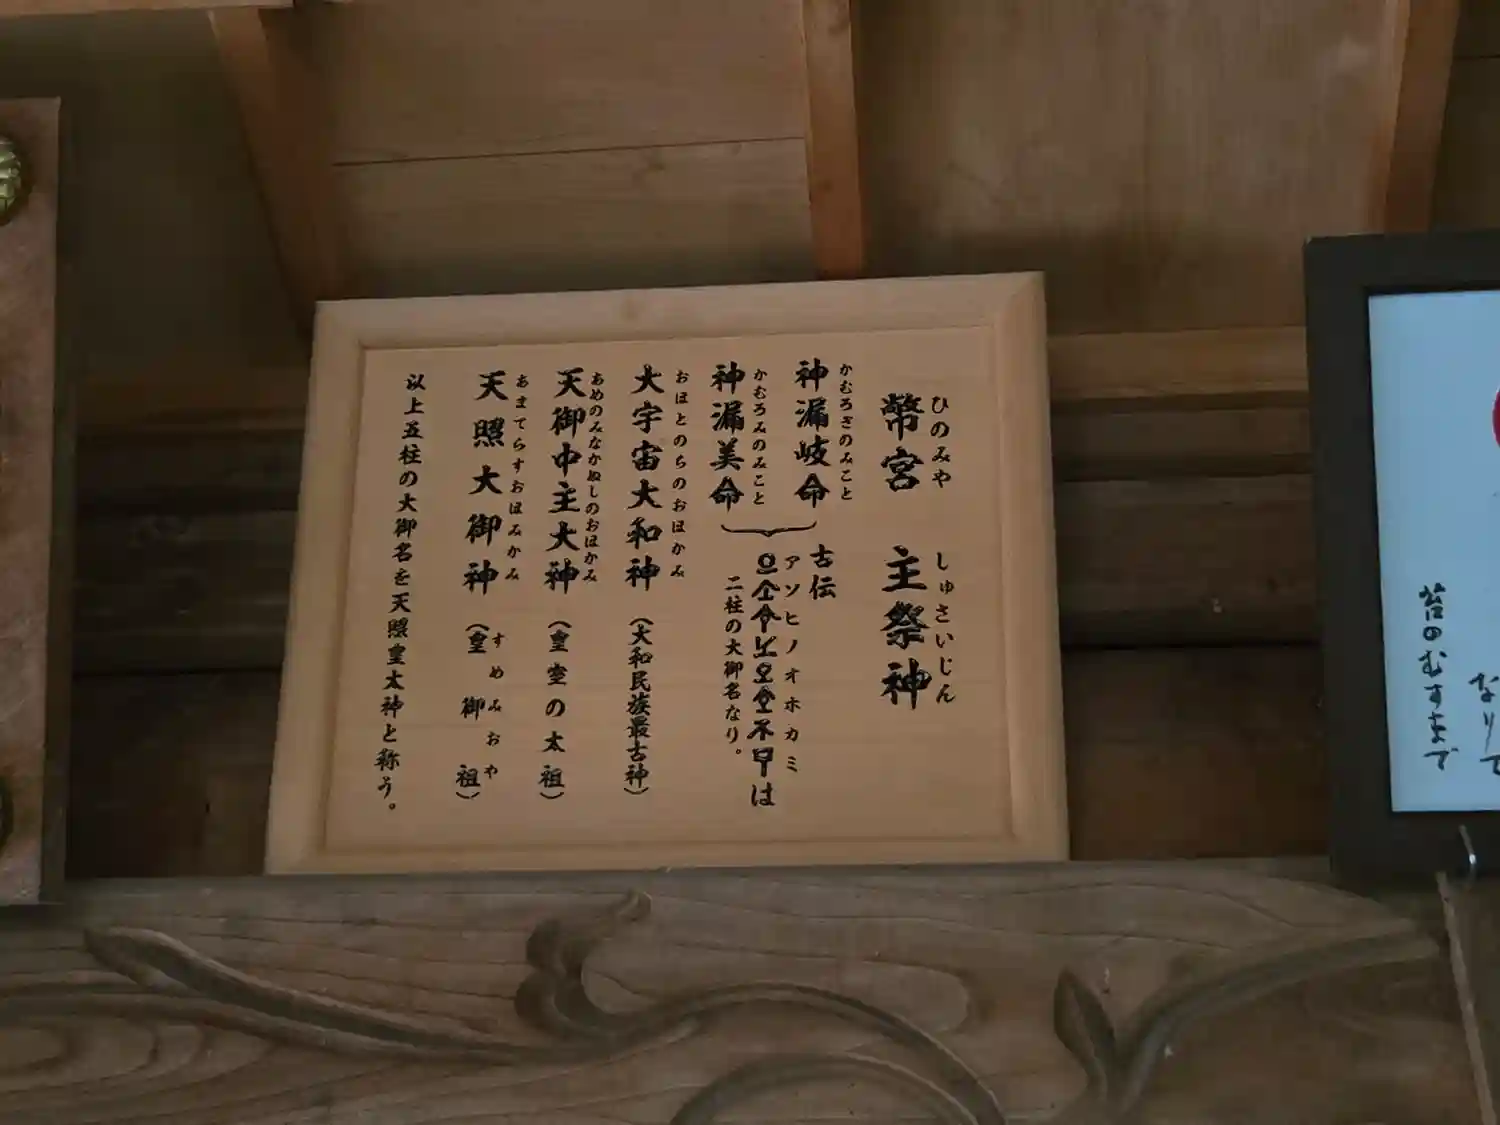 幣宮 主祭神
ひのみや しゅさいじん
神漏岐命
かむろぎのみこと
神漏美命
かむろみのみこと
古伝
アソヒノオホカミ
は
二柱の大御名なり。
大宇宙大和神(大和民族最古神)
おほとのちのおほかみ
天御中主大神(皇室の太祖)
あめのみなかぬしのおほかみ
天照大御神(皇御祖)
あまてらすおほみかみ すめみおや
以上五柱の大御名を天照皇太神と称う。
なりて
苔のむすまで